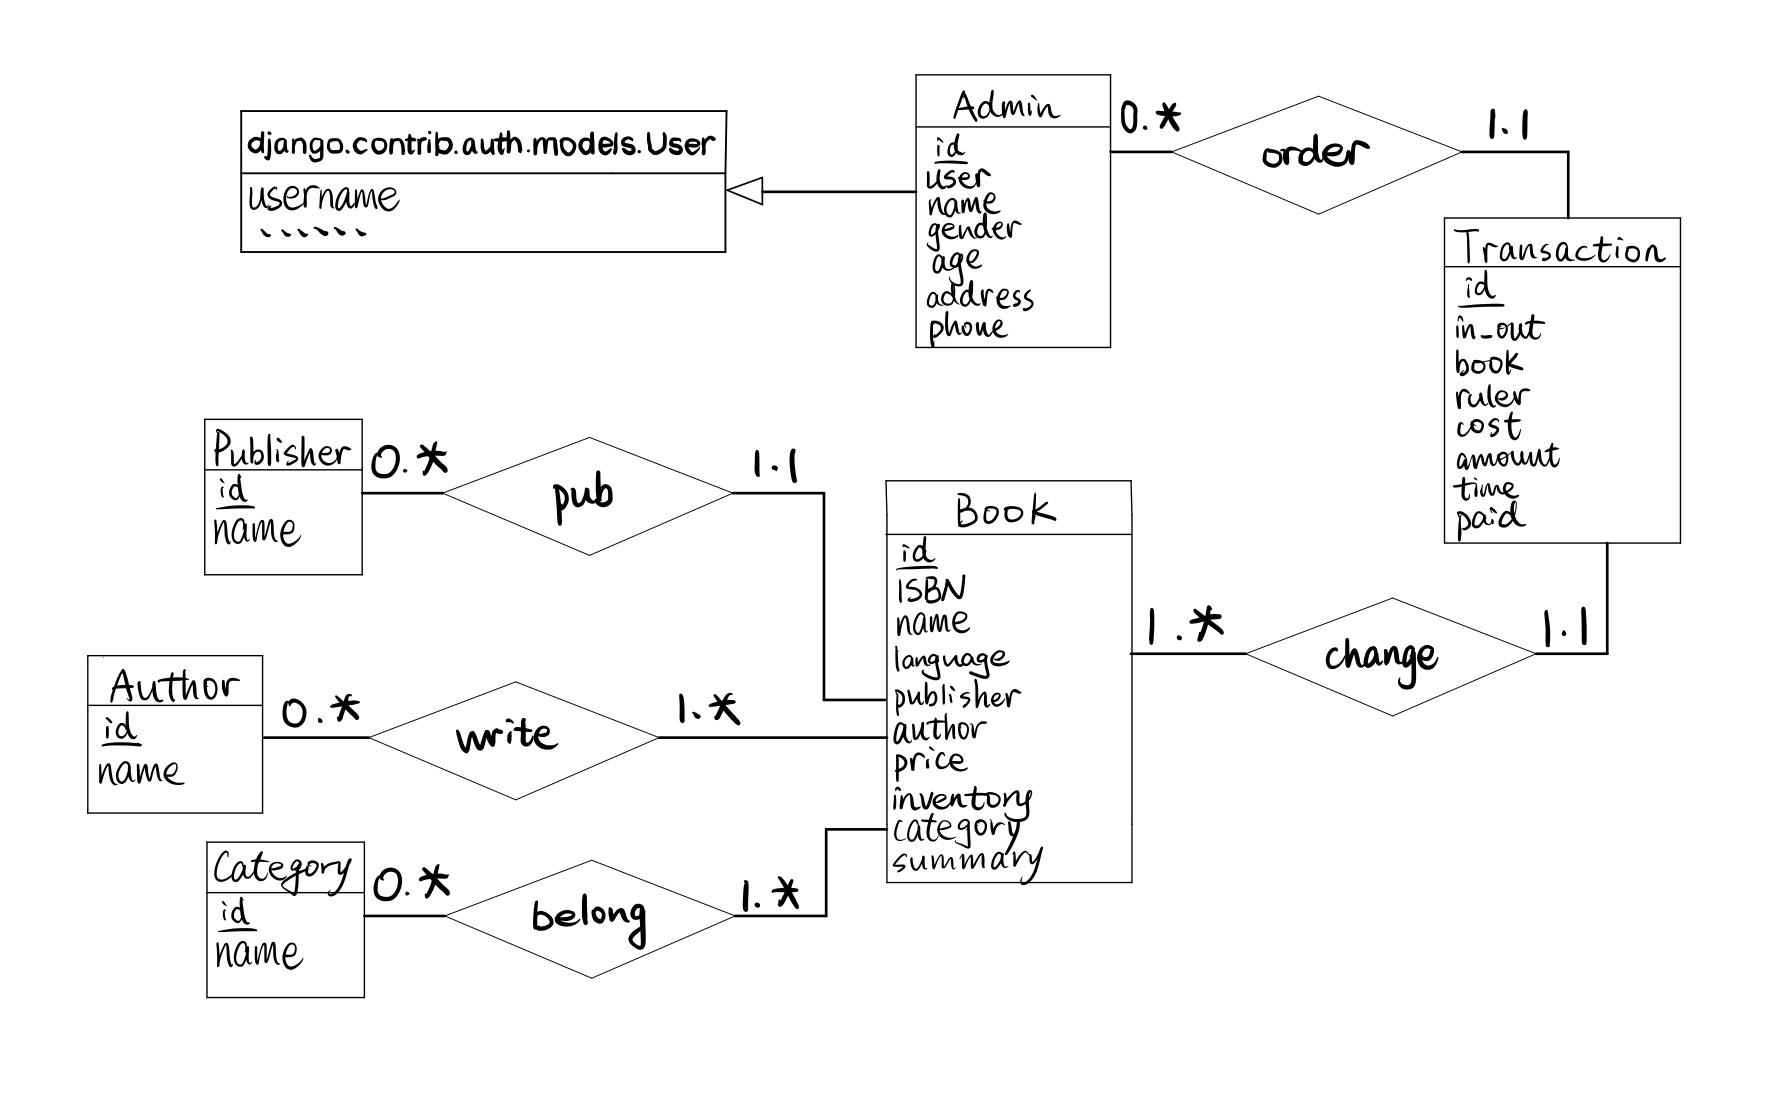 django.contrib.auth.models.User
username
Admin
id
user
name
gender
age
address
phone
0.*
order
1.1
Transaction
id
in_out
book
ruler
cost
amount
time
paid
Publisher
id
name
0.*
pub
1.1
Book
id
ISBN
name
language
publisher
author
price
inventory
category
summary
1.*
change
1.1
Author
id
name
0.*
write
1.*
Category
id
name
0.*
belong
1.*